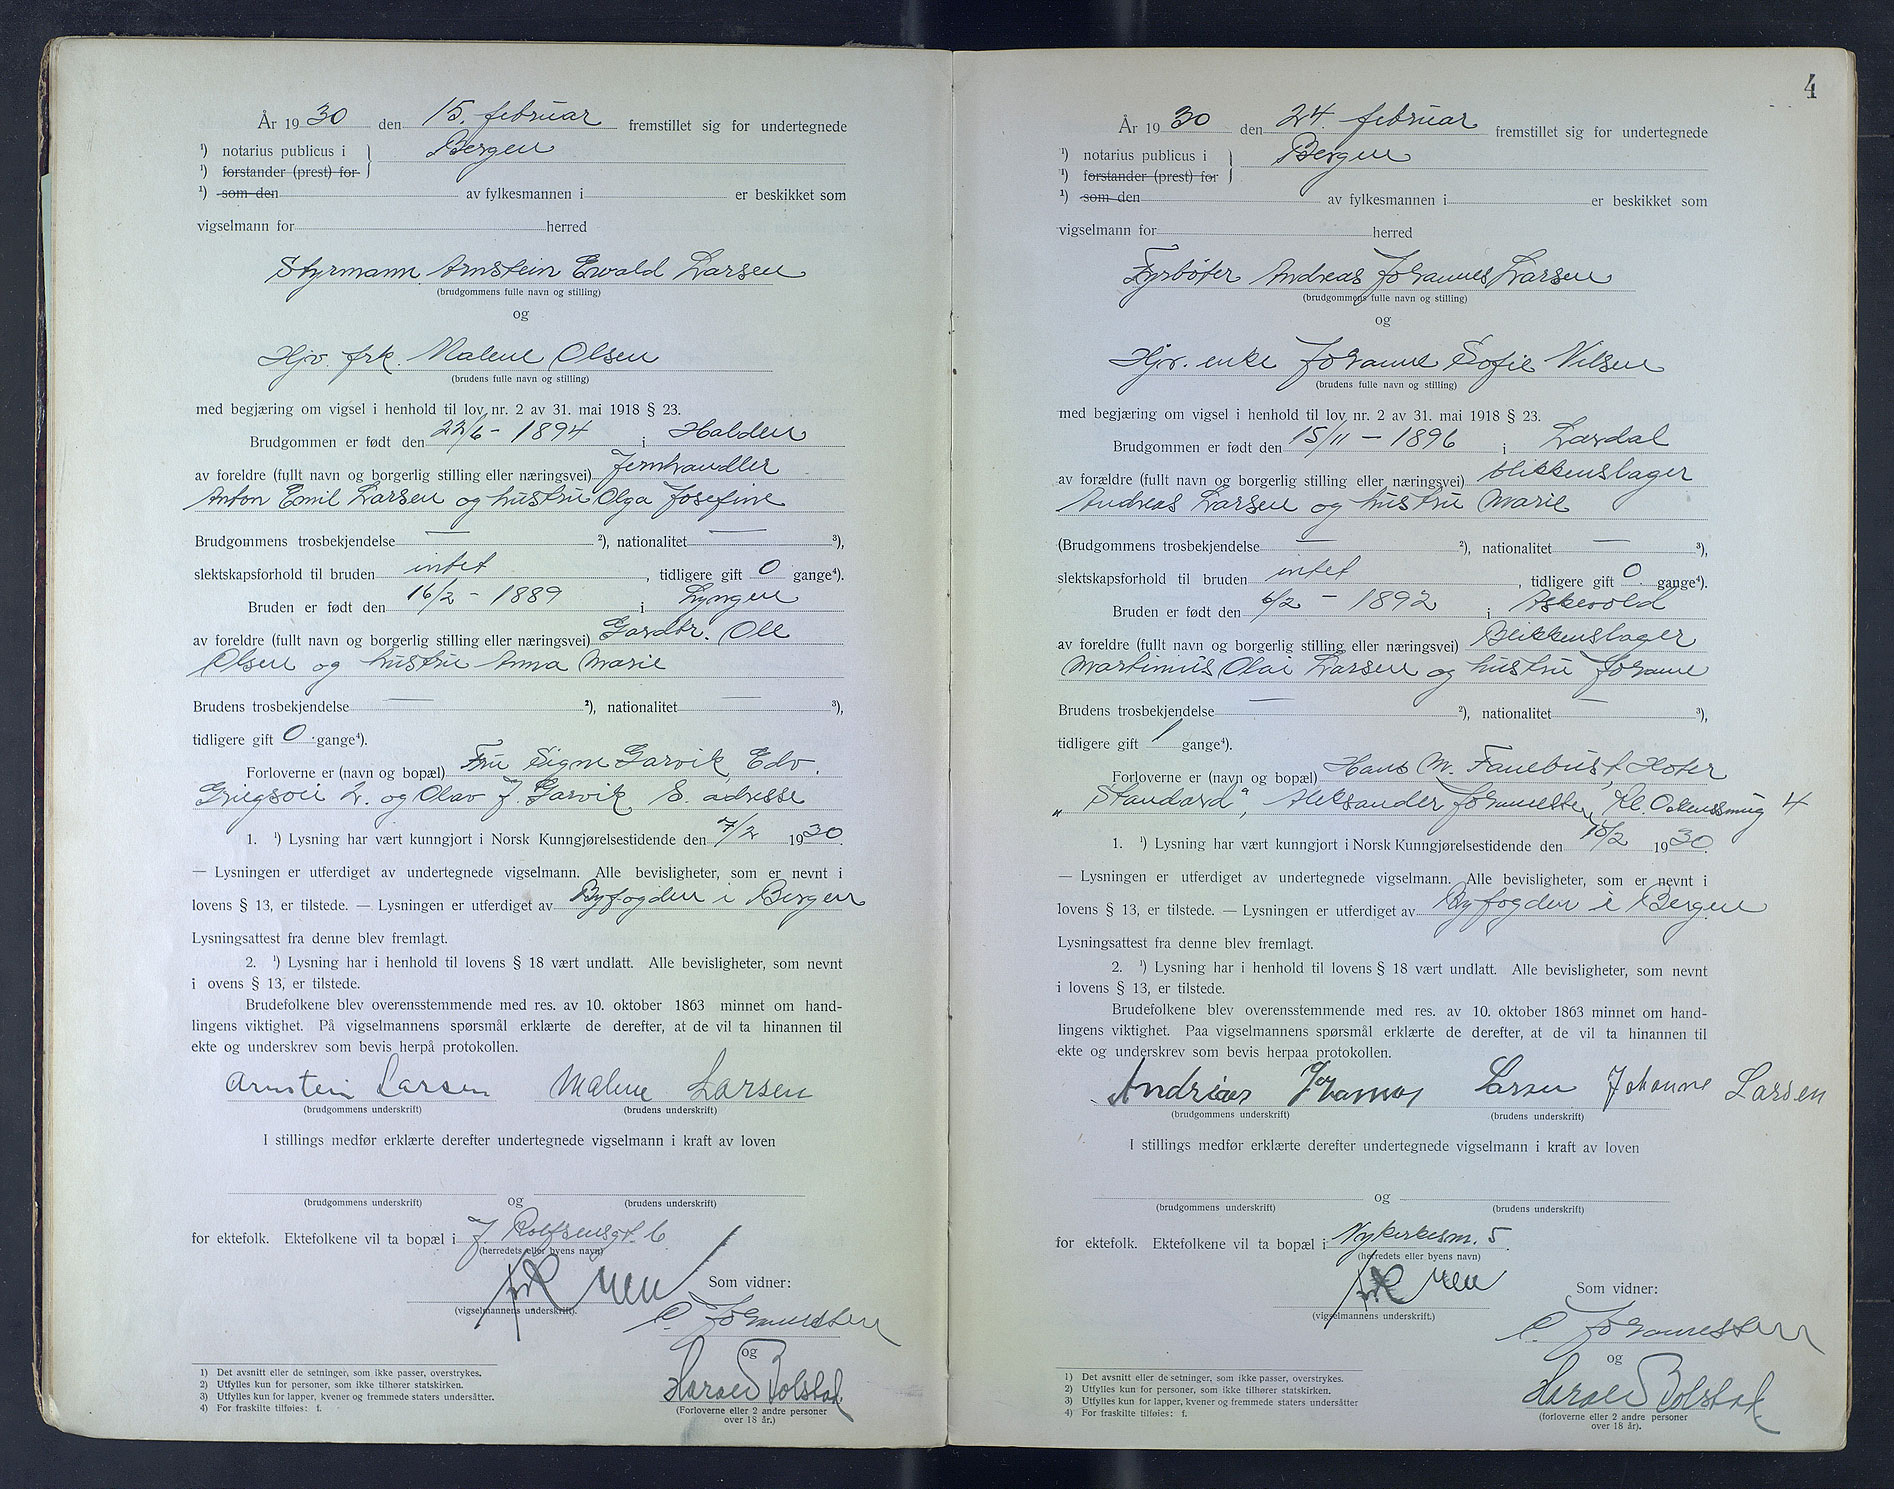 År 1930 den 15. februar fremstillet sig for undertegnede
¹) notarius publicus i Bergen
¹) forstander (prest) for
¹) som den av fylkesmannen i er beskikket som
vigselmann for herred
Styrmann Arnstein Ewald Larsen
(brudgommens fulle navn og stilling)
og
Hjv. frk. Malene Olsen
(brudens fulle navn og stilling)
med begjæring om vigsel i henhold til lov nr. 2 av 31. mai 1918 § 23.
Brudgommen er født den 22/6 - 1894 i Halden
av foreldre (fullt navn og borgerlig stilling eller næringsvei) Jernhandler
Anton Emil Larsen og hustru Olga Josefine
Brudgommens trosbekjendelse — ²), nationalitet — ³),
slektskapsforhold til bruden intet, tidligere gift 0 gange⁴).
Bruden er født den 16/2 - 1889 i Lyngen
av foreldre (fullt navn og borgerlig stilling eller næringsvei) Gardbr. Ole
Olsen og hustru Anna Marie
Brudens trosbekjendelse — ²), nationalitet — ³),
tidligere gift 0 gange⁴).
Forloverne er (navn og bopæl) Fru Signe Garvik, Edv.
Griegsvei 2. og Olav J. Garvik, S. adresse
1. ¹) Lysning har vært kunngjort i Norsk Kunngjørelsestidende den 7/2 1930.
— Lysningen er utferdiget av undertegnede vigselmann. Alle bevisligheter, som er nevnt i
lovens § 13, er tilstede. — Lysningen er utferdiget av Byfogden i Bergen
Lysningsattest fra denne blev fremlagt.
2. ¹) Lysning har i henhold til lovens § 18 vært undlatt. Alle bevisligheter, som nevnt
i ovens § 13, er tilstede.
Brudefolkene blev overensstemmende med res. av 10. oktober 1863 minnet om hand-
lingens viktighet. På vigselmannens spørsmål erklærte de derefter, at de vil ta hinannen til
ekte og underskrev som bevis herpå protokollen.
Arnstein Larsen Malene Larsen
(brudgommens underskrift) (brudens underskrift)
I stillings medfør erklærte derefter undertegnede vigselmann i kraft av loven
og
(brudgommens underskrift) (brudens underskrift)
for ektefolk. Ektefolkene vil ta bopæl i J. Rolfsensgt. 6
(herredets eller byens navn)
Som vidner:
(vigselmannens underskrift).
C. Johannessen
og
Harald Bolstad
(Forloverne eller 2 andre personer
over 18 år.)
1) Det avsnitt eller de setninger, som ikke passer, overstrykes.
2) Utfylles kun for personer, som ikke tilhører statskirken.
3) Utfylles kun for lapper, kvener og fremmede staters undersåtter.
4) For fraskilte tilføies: f.
4
År 1930 den 24. februar fremstillet sig for undertegnede
¹) notarius publicus i Bergen
¹) forstander (prest) for
¹) som den av fylkesmannen i er beskikket som
vigselmann for herred
Fyrbøter Andreas Johannes Larsen
(brudgommens fulle navn og stilling)
og
Hjv. enke Johanne Sofie Nilsen
(brudens fulle navn og stilling)
med begjæring om vigsel i henhold til lov nr. 2 av 31. mai 1918 § 23.
Brudgommen er født den 15/11 - 1896 i Lærdal
av forældre (fullt navn og borgerlig stilling eller næringsvei) blikkenslager
Andreas Larsen og hustru Marie
(Brudgommens trosbekjendelse — ²), nationalitet — ³),
slektskapsforhold til bruden intet, tidligere gift 0 gange⁴).
Bruden er født den 6/2 - 1892 i Askevold
av foreldre (fullt navn og borgerlig stilling eller næringsvei) Blikkenslager
Martinius Olai Larsen og hustru Johanne
Brudens trosbekjendelse — ²), nationalitet — ³),
tidligere gift 1 gange⁴).
Forloverne er (navn og bopæl) Hans M. Fanebust, Hotel
„Standard", Aleksander Johannessen, Kl. 4
1. ¹) Lysning har vært kunngjort i Norsk Kunngjørelsestidende den 15/2 1930.
— Lysningen er utferdiget av undertegnede vigselmann. Alle bevisligheter, som er nevnt i
lovens § 13, er tilstede. — Lysningen er utferdiget av Byfogden i Bergen
Lysningsattest fra denne blev fremlagt.
2. ¹) Lysning har i henhold til lovens § 18 vært undlatt. Alle bevisligheter, som nevnt
i lovens § 13, er tilstede.
Brudefolkene blev overensstemmende med res. av 10. oktober 1863 minnet om hand-
lingens viktighet. Paa vigselmannens spørsmål erklærte de derefter, at de vil ta hinannen til
ekte og underskrev som bevis herpaa protokollen.
Andreas Johannes Larsen Johanne Larsen
(brudgommens underskrift) (brudens underskrift)
I stillings medfør erklærte derefter undertegnede vigselmann i kraft av loven
og
(brudgommens underskrift) (brudens underskrift)
for ektefolk. Ektefolkene vil ta bopæl i Nykirkesm. 5
(herredets eller byens navn)
Som vidner:
(vigselmannens underskrift.)
C. Johannessen
og
Harald Bolstad
(forloverne eller 2 andre personer
over 18 år).
1) Det avsnitt eller de setninger, som ikke passer, overstrykes.
2) Utfylles kun for personer, som ikke tilhører statskirken.
3) Utfylles kun for lapper, kvener og fremmede staters undersåtter
4) For fraskilte tilføies: f.